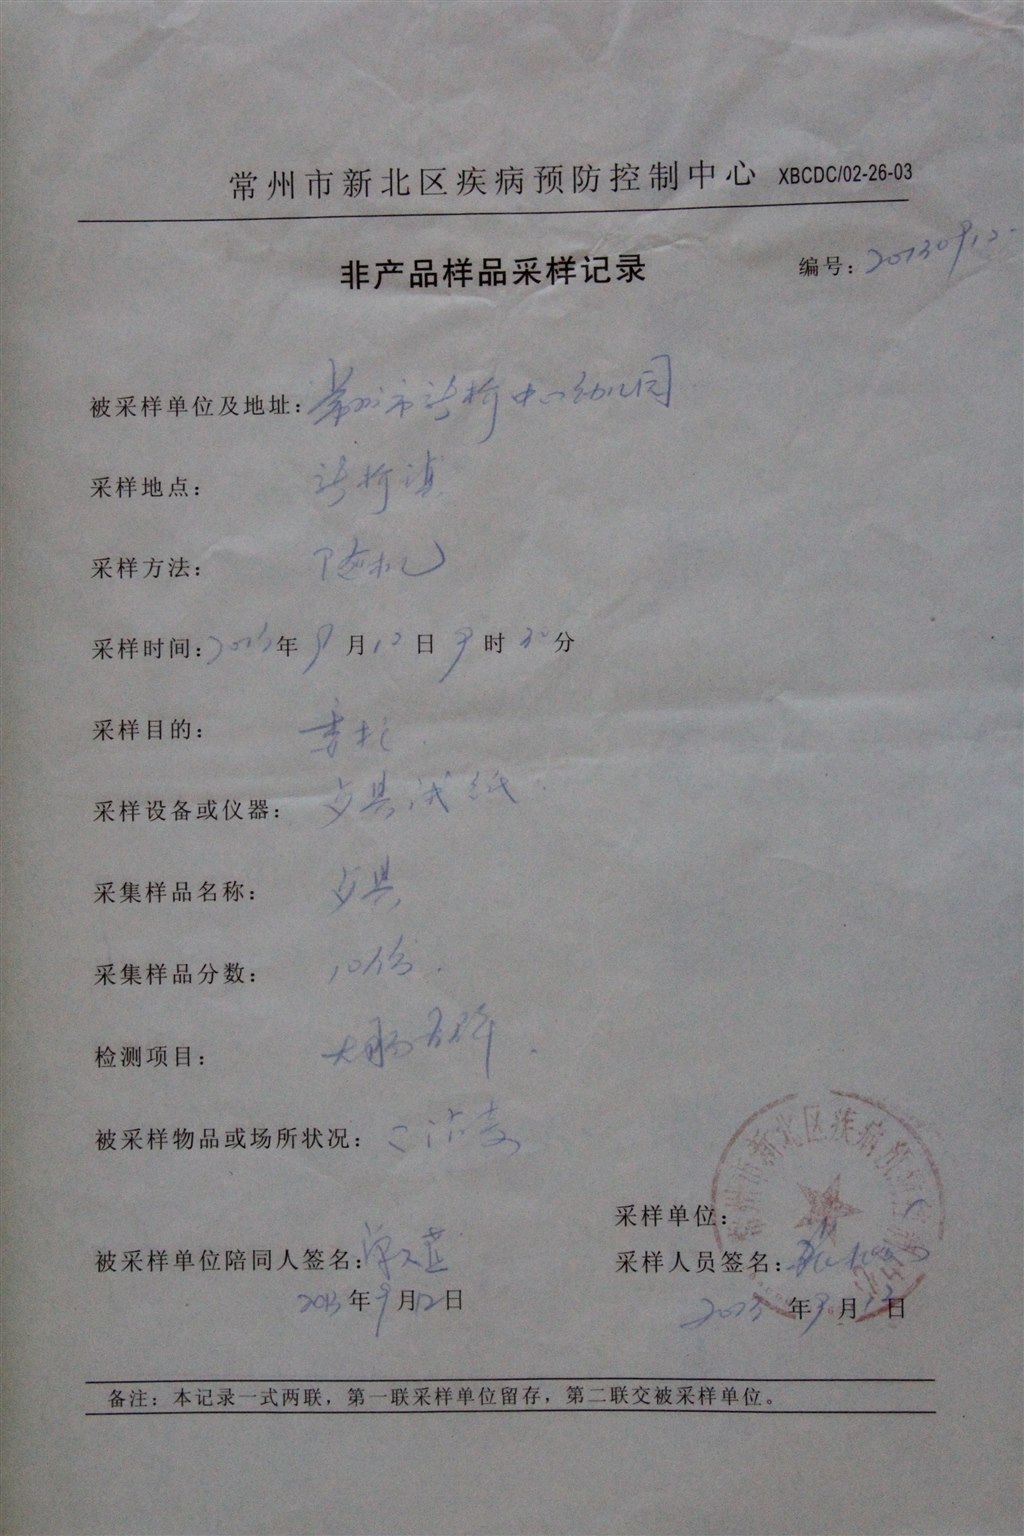 常州市新北区疾病预防控制中心 XBCDC/02-26-03
非产品样品采样记录 编号：20130912
被采样单位及地址：常州市新桥中心幼儿园
采样地点：新桥镇
采样方法：随机
采样时间：2013年9月12日9时30分
采样目的：委托
采样设备或仪器：试纸
采集样品名称：
采集样品分数：10份
检测项目：大肠
被采样物品或场所状况：已消毒
采样单位：
被采样单位陪同人签名： 采样人员签名：
2013年9月12日 2013年9月12日
备注：本记录一式两联，第一联采样单位留存，第二联交被采样单位。
常州市新北区疾病预防控制中心